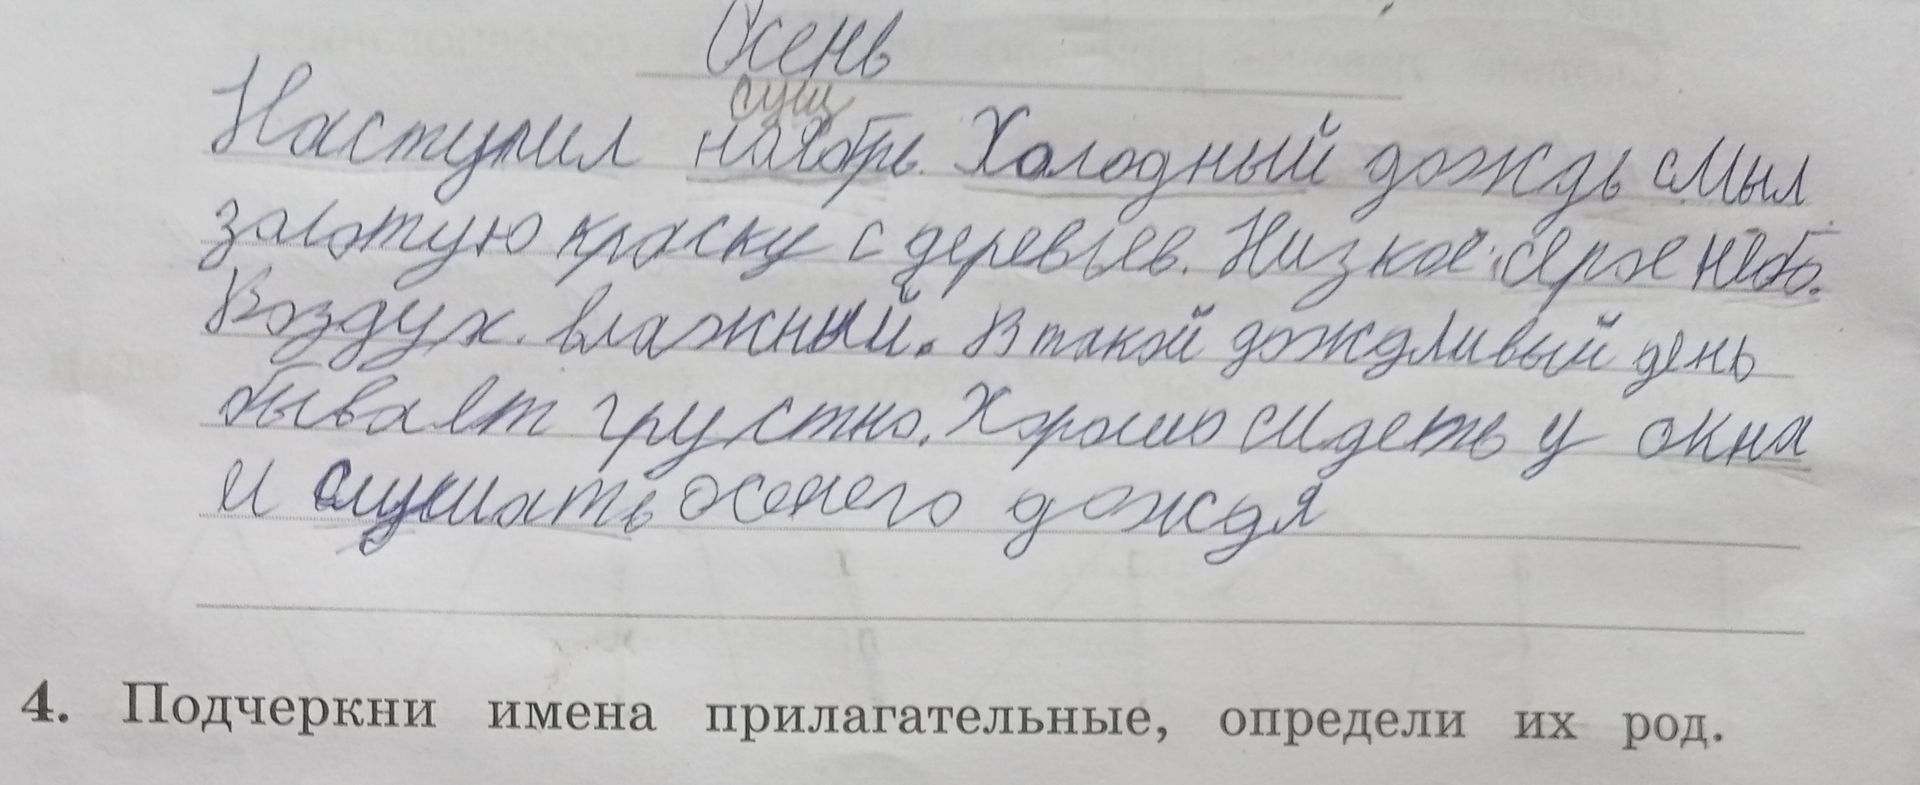 Осень
сущ
Наступил наябрь. Холодный дождь смыл
залотую краску с деревьев. Низкое серое небо.
Воздух влажный. В такой дождливый день
бывает грустно. Хорошо сидеть у окна
и слушать осенего дождя
4. Подчеркни имена прилагательные, определи их род.